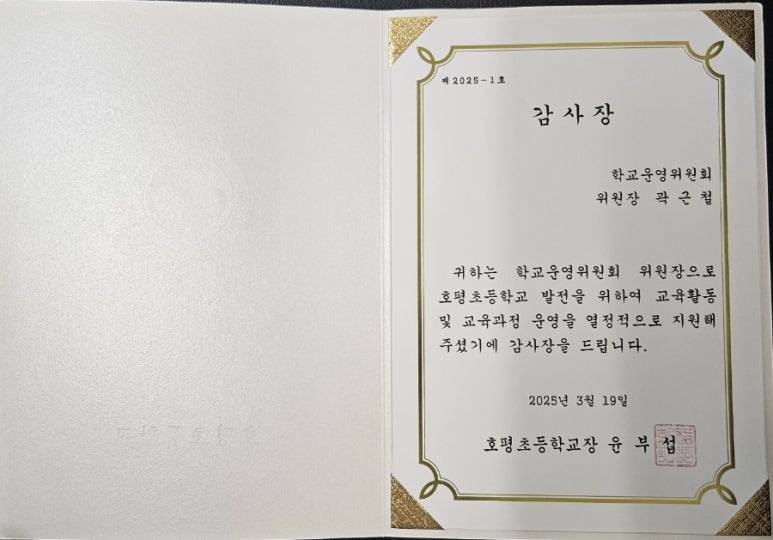 제 2025-1호
감사장
학교운영위원회
위원장 곽근철
귀하는 학교운영위원회 위원장으로
호평초등학교 발전을 위하여 교육활동
및 교육과정 운영을 열정적으로 지원해
주셨기에 감사장을 드립니다.
2025년 3월 19일
호평초등학교장 윤부섭